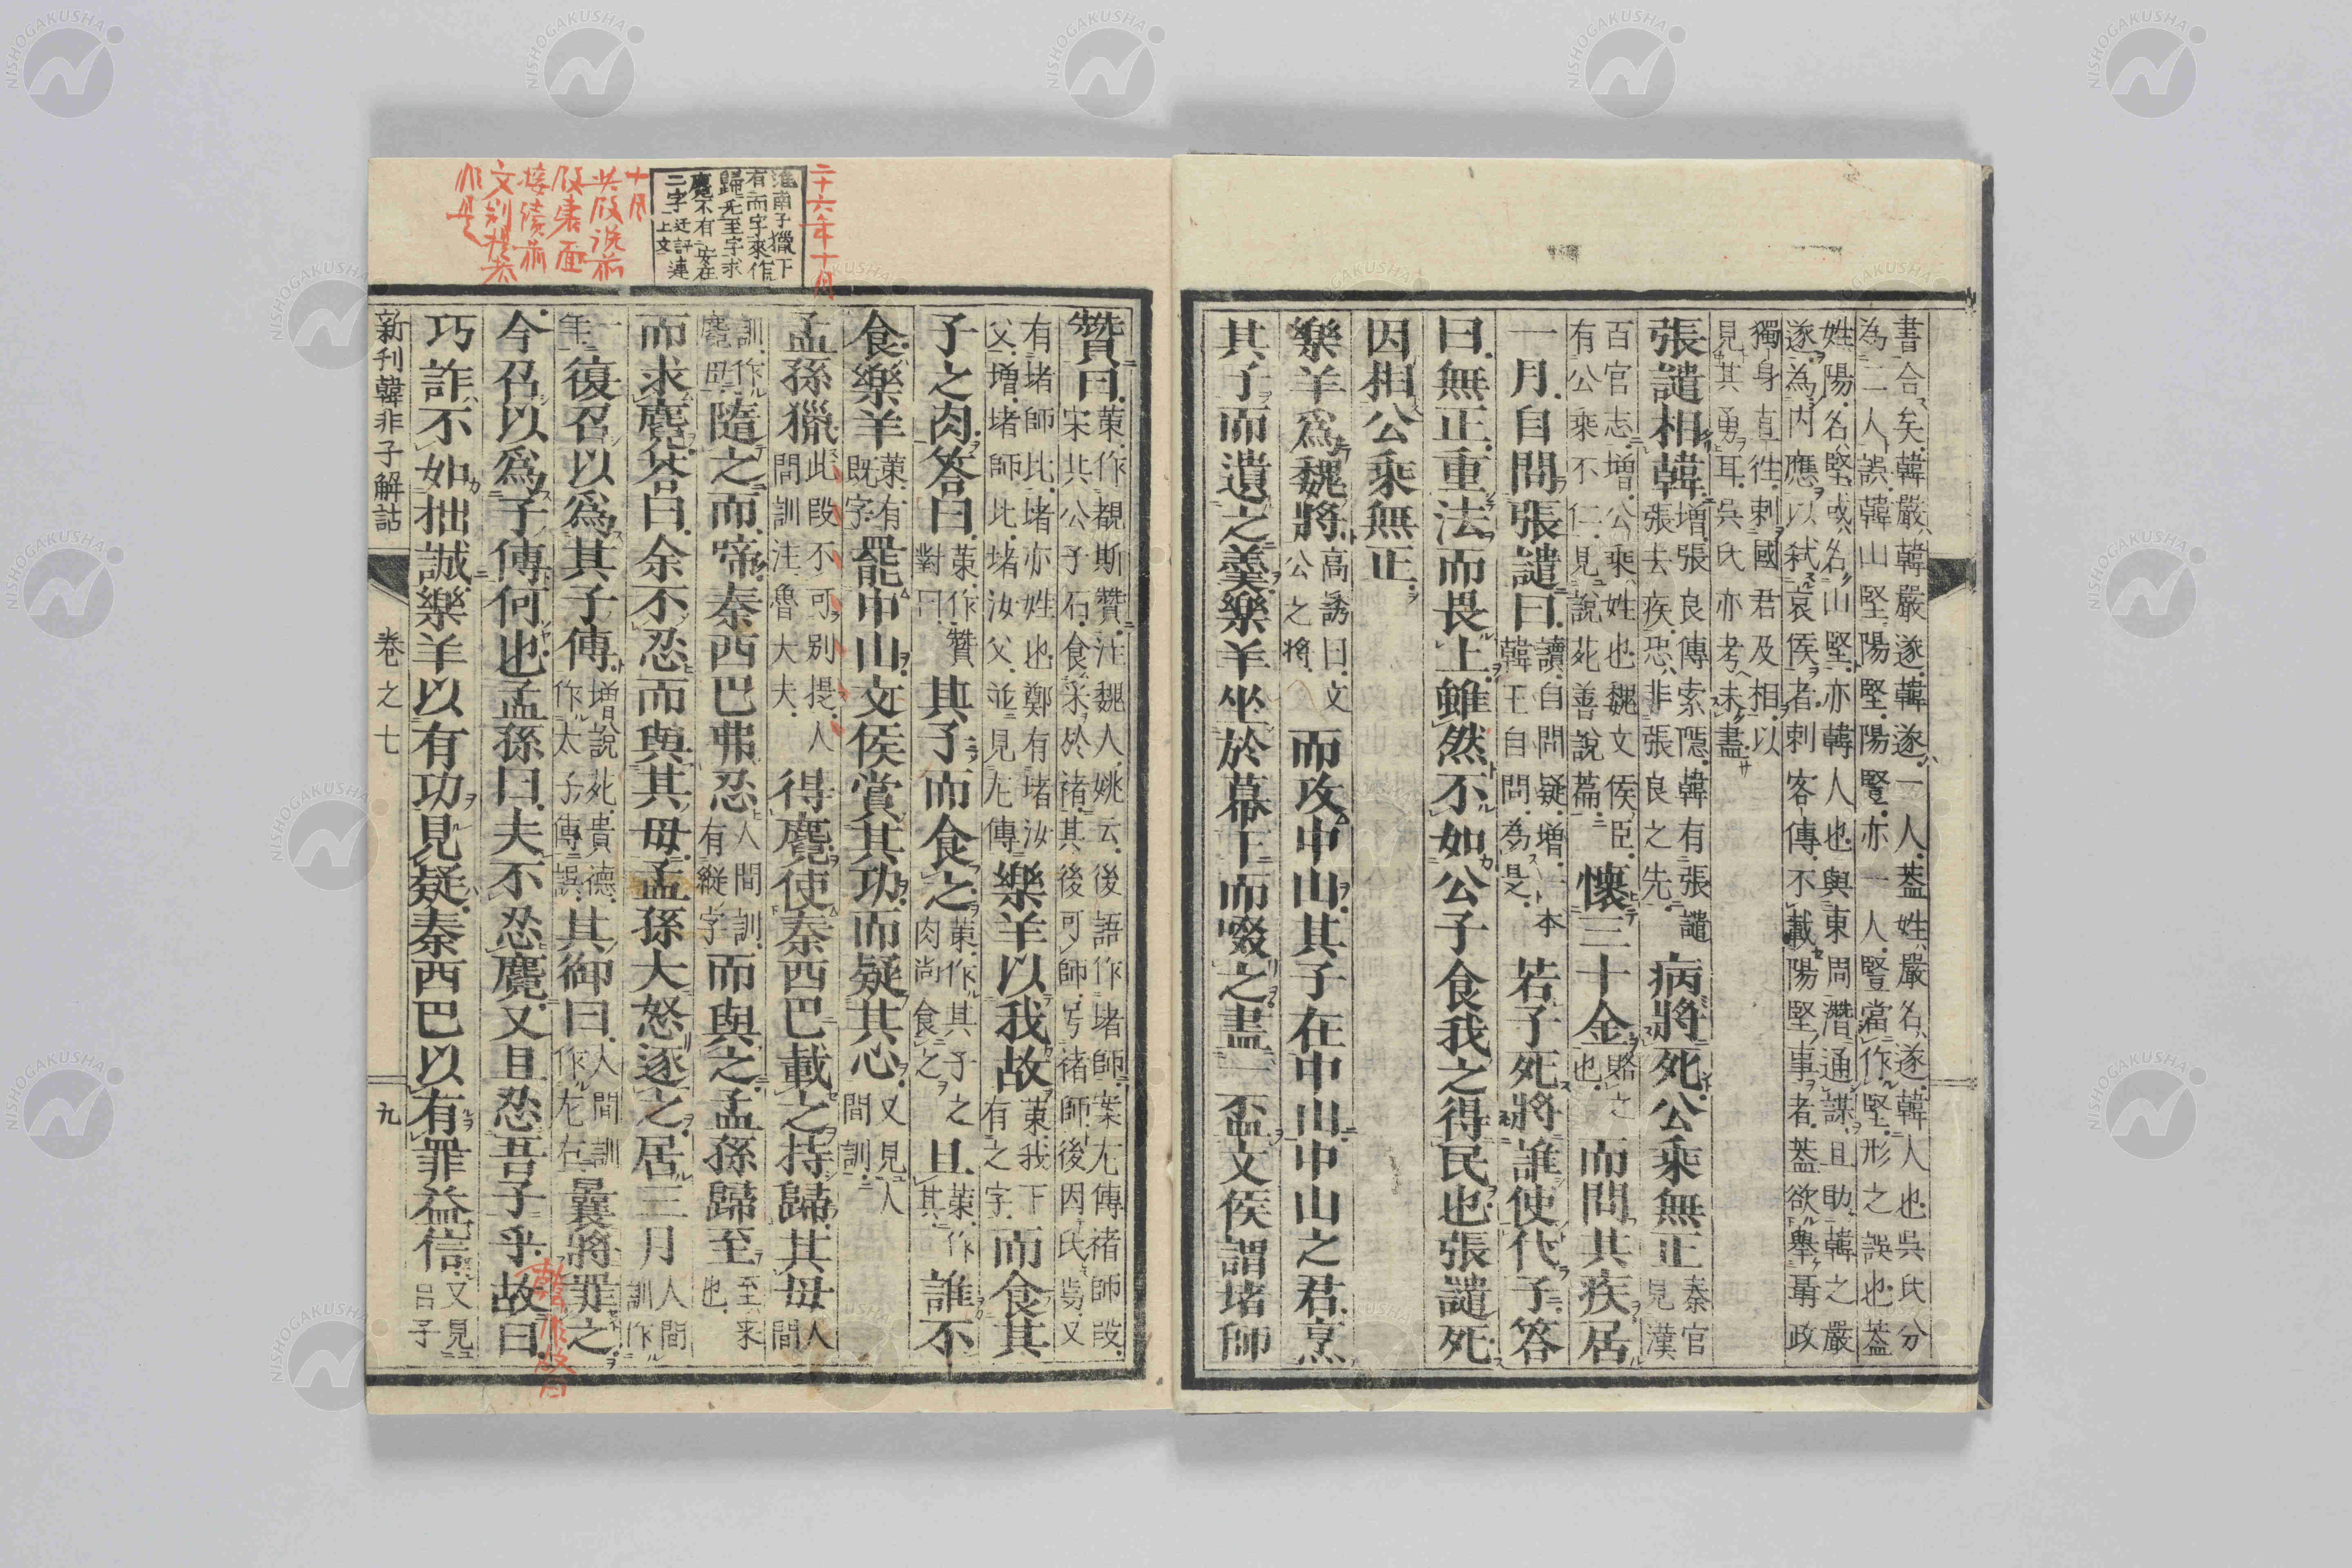 書合矣韓嚴韓嚴遂韓遂一人蓋姓嚴名遂韓人也吳氏分
為二人誤韓山堅陽堅陽豎亦一人豎當作堅形之誤也蓋
姓陽名堅或名山堅亦韓人也與東周潛通謀且助韓之嚴
遂為内應以弑哀侯者刺客傳不載陽堅事者蓋欲舉聶政
獨身直往刺國君及相以
見其勇耳吳氏亦考未盡
張譴相韓
增張良傳索隱韓有張譴
張去疾恐非張良之先
病將死公乘無正
秦官
見漢
百官志增公乘姓也魏文侯臣
有公乘不仁見說苑善說篇
懷三十金
賂之
也
而問其疾居
一月自問張譴曰
讀自問疑增一本
韓王自問為是
若子死將誰使代子答
曰無正重法而畏上雖然不如公子食我之得民也張譴死
因相公乘無正
樂羊爲魏將
高誘曰文
公之將
而攻中山其子在中山中山之君烹
其子而遺之羹樂羊坐於幕下而啜之盡一盃文侯謂堵師
贊曰
策作覩斯贊注魏人姚云後語作堵師案左傳褚師段
宋共公子石食采於褚其後可師号褚師後因氏焉又
有堵師比堵亦姓也鄭有堵汝
父增堵師比堵汝父並見左傳
樂羊以我故
策我下
有之字
而食其
子之肉答曰
策作贊
對曰
其子而食之
策作其子之
肉尚食之
且
策作
其
誰不
食樂羊
策有
既字
罷中山文侯賞其功而疑其心
又見人
間訓
孟孫獵
此段不可別提人
間訓注魯大夫
得麑使秦西巴載之持歸其母
人
間
訓作
麑母
隨之而啼秦西巴弗忍
人間訓
有縱字
而與之孟孫歸至
至来
也
而求麑荅曰余不忍而與其母孟孫大怒逐之居三月
人間
訓作
一
年
復召以爲其子傅
增說苑貴德
作太子傅誤
其御曰
人間訓
作左右
曩將罪之
今召以爲子傅何也孟孫曰夫不忍麑又且忍吾子乎故曰
巧詐不如拙誠樂羊以有功見疑秦西巴以有罪益信
又見
呂子
新刊韓非子解詁
卷之七
九
二十六年十月
淮南子獵下
有而字來作
歸无至字求
麑不有安在
二字近評連
上文
十月